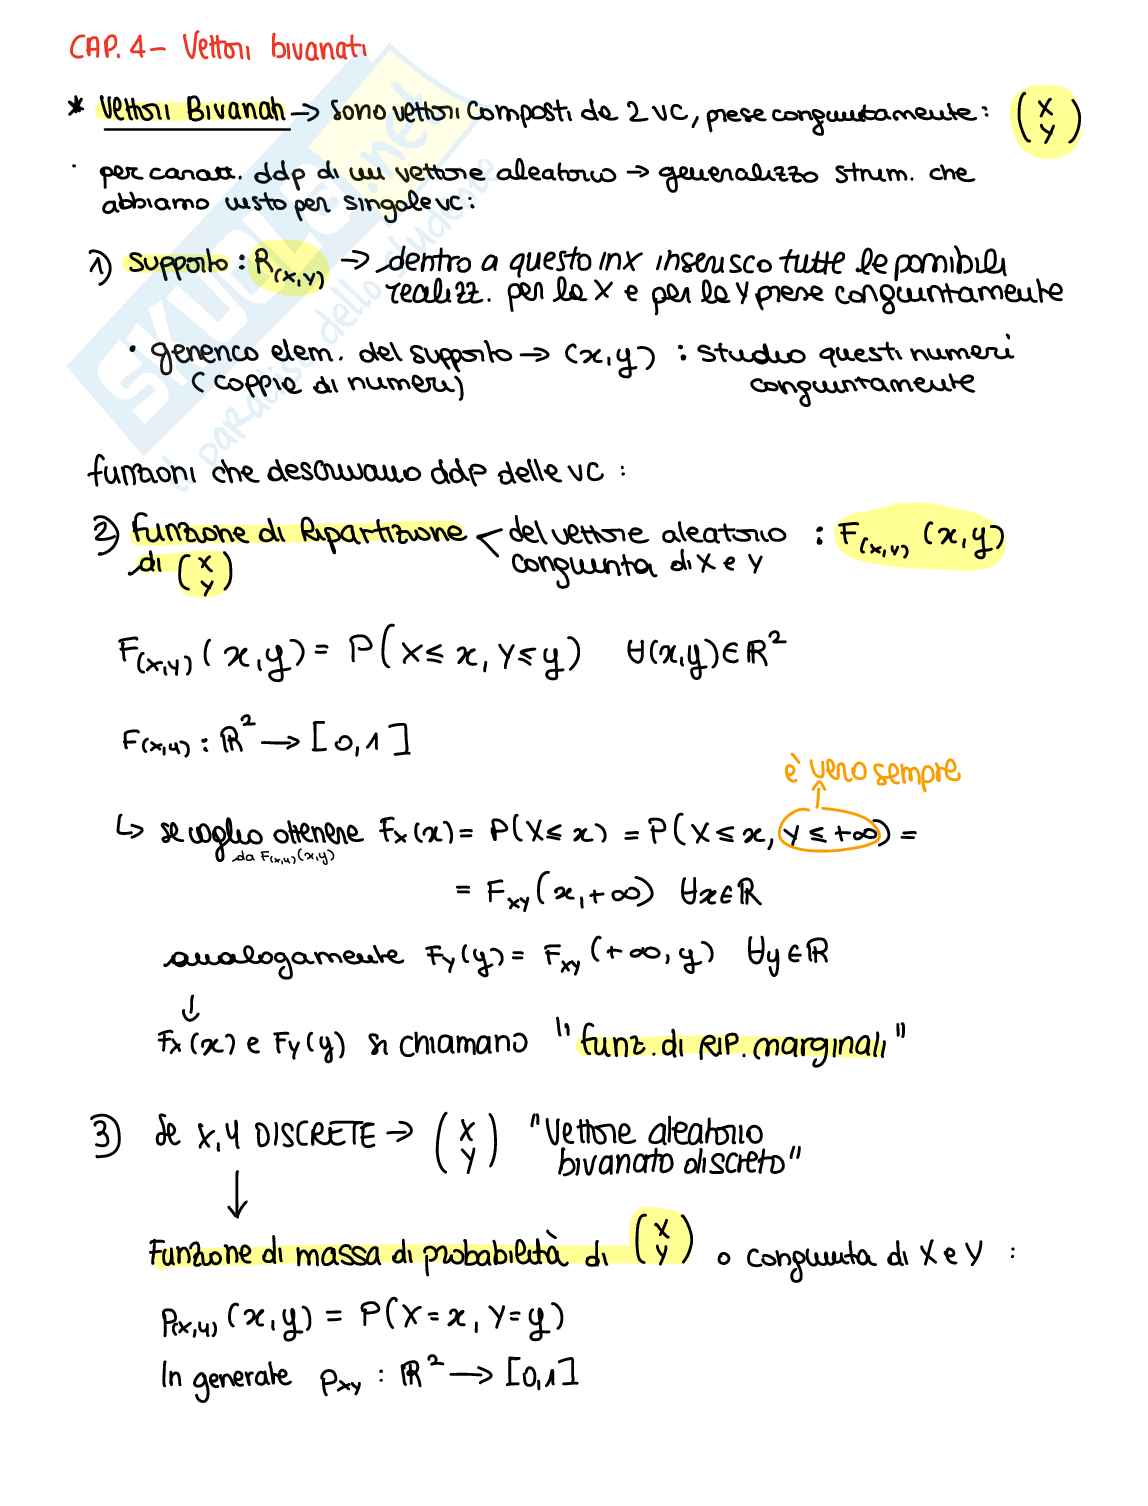 CAP. 4 - Vettori bivariati
* Vettori Bivariati → sono vettori composti da 2 VC, prese congiuntamente : (X Y)
· per caratt. ddp di un vettore aleatorio → generalizzo strum. che
abbiamo visto per singole vc :
1) supporto : R(X,Y) → dentro a questo inx inserisco tutte le possibili
realizz. per la X e per la Y prese congiuntamente
• generico elem. del supporto → (x,y) : studio questi numeri
(coppie di numeri) congiuntamente
funzioni che descrivano ddp delle VC :
2) Funzione di Ripartizione < del vettore aleatorio : F(X,Y) (x,y)
di (X Y) congiunta di X e Y
F(X,Y) (x,y) = P(X≤x, Y≤y) ∀(x,y)∈ℝ²
F(X,Y) : ℝ² → [0,1]
è vero sempre
↳ se voglio ottenere Fx(x) = P(X≤x) = P(X≤x, Y≤+∞) =
da F(X,Y)(x,y)
= Fxy(x,+∞) ∀x∈ℝ
analogamente Fy(y) = Fxy(+∞,y) ∀y∈ℝ
↓
Fx(x) e Fy(y) si chiamano "funz. di RIP. marginali"
3) Se X,Y DISCRETE → (X Y) "Vettore aleatorio
bivariato discreto"
↓
Funzione di massa di probabilità di (X Y) o congiunta di X e Y :
P(X,Y) (x,y) = P(X=x, Y=y)
In generale pxy : ℝ² → [0,1]
SKUOLA.net
il paradiso dello studente